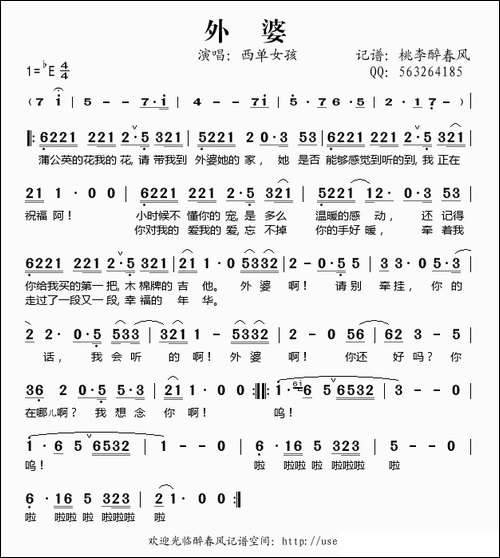 外 婆
演唱：西单女孩 记谱：桃李醉春风
1=♭E 4/4 QQ：563264185
(7 i | 5 - - 7·i | 4 - - 7i | 5·7 6·5 | 2·1 7 -)
|: 6221 221 2ˇ·5 321 | 5221 221 2 0·3 53 | 6221 221 2·5 321 |
蒲公英的花我的花,请 带我到 外婆她的 家， 她 是否 能够感觉到听的到,我 正在
21 1·0 0 | 6221 221 2·5 321 | 5221 12·0·3 53 |
祝福 阿！ 小时候不 懂你的 宠,是 多么 温暖的感 动， 还 记得
你对我的 爱我的爱,忘 不掉 你的手好 暖， 牵 着我
6221 221 2ˇ·5 321 | 21 1·0 5332 | 2 - 0·5 5 | 3 3·0 5·3 |
你给我买的第一 把,木 棉牌的 吉 他。 外 婆 啊！ 请 别 牵 挂， 你 的
走过了一段又一 段,幸 福的 年 华。
2 2·0·5 533 | 321 1·0 5332 | 2 - 0 56 | 6 2·0 2 |
话， 我 会 听 的 啊！ 外 婆 啊！ 你还 好吗？你
36 2 0·5 5·3 | 21 1·0 0 :|: 1·6 5ˇ 6532 | 1 - - 0 |
在哪儿啊？ 我 想 念 你 啊！ 呜！
1·6 5ˇ 6532 | 1 - - 0 | 6·16 5 323 | 5 - - 0 |
呜！ 啦 啦啦 啦 啦啦 啦
6·16 5 323 | 21 1·0 0 :|
啦 啦啦 啦 啦啦 啦
欢迎光临醉春风记谱空间：http://use